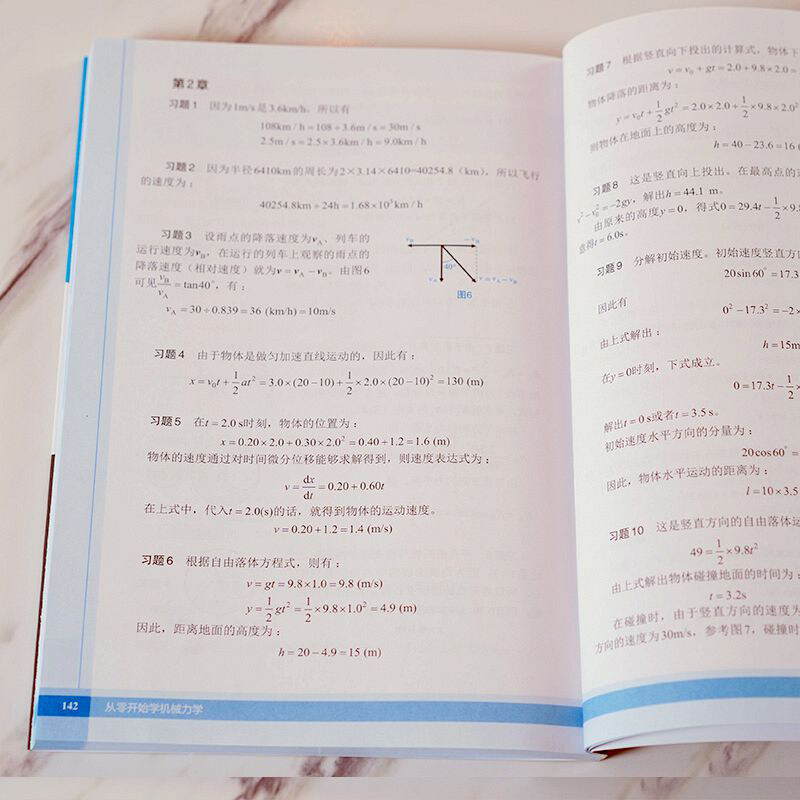 第2章
习题1 因为1m/s是3.6km/h，所以有
108km / h = 108 ÷ 3.6m / s = 30m / s
2.5m / s = 2.5 × 3.6km / h = 9.0km / h
习题2 因为半径6410km的周长为2×3.14×6410=40254.8（km），所以飞行
的速度为：
40254.8km ÷ 24h = 1.68 × 10³ km / h
习题3 设雨点的降落速度为v_A、列车的
运行速度为v_B，在运行的列车上观察的雨点的
降落速度（相对速度）就为v = v_A − v_B。由图6
可见 v_B/v_A = tan40°，有：
v_A = 30 ÷ 0.839 = 36 (km/h) = 10m/s
v_B −v_B
40°
v_A v = v_A − v_B
图6
习题4 由于物体是做匀加速直线运动的，因此有：
x = v₀t + 1/2 at² = 3.0×(20−10) + 1/2 ×2.0×(20−10)² = 130 (m)
习题5 在t = 2.0 s时刻，物体的位置为：
x = 0.20×2.0 + 0.30×2.0² = 0.40 + 1.2 = 1.6 (m)
物体的速度通过对时间微分位移能够求解得到，则速度表达式为：
v = dx/dt = 0.20 + 0.60t
在上式中，代入t = 2.0(s)的话，就得到物体的运动速度。
v = 0.20 + 1.2 = 1.4 (m/s)
习题6 根据自由落体方程式，则有：
v = gt = 9.8×1.0 = 9.8 (m/s)
y = 1/2 gt² = 1/2 ×9.8×1.0² = 4.9 (m)
因此，距离地面的高度为：
h = 20 − 4.9 = 15 (m)
142 从零开始学机械力学
习题7 根据竖直向下投出的计算式，物体下
v = v₀ + gt = 2.0 + 9.8×2.0 =
物体降落的距离为：
y = v₀t + 1/2 gt² = 2.0×2.0 + 1/2 ×9.8×2.0²
则物体在地面上的高度为：
h = 40 − 23.6 = 16 (
习题8 这是竖直向上投出。在最高点的
v² − v₀² = −2gy，解出h = 44.1 m。
由原来的高度y = 0，得式0 = 29.4t − 1/2 ×9.8
t = 6.0s。
习题9 分解初始速度。初始速度竖直方向
20sin60° = 17.3
因此有
0² − 17.3² = −2×
由上式解出：
h = 15m
在y = 0时刻，下式成立。
0 = 17.3t − 1/2 ×
解出t = 0 s或者t = 3.5 s。
初始速度水平方向的分量为：
20cos60° =
因此，物体水平运动的距离为：
l = 10×3.5
习题10 这是竖直方向的自由落体运
49 = 1/2 ×9.8t²
由上式解出物体碰撞地面的时间为：
t = 3.2s
在碰撞时，由于竖直方向的速度为
方向的速度为30m/s，参考图7，碰撞时